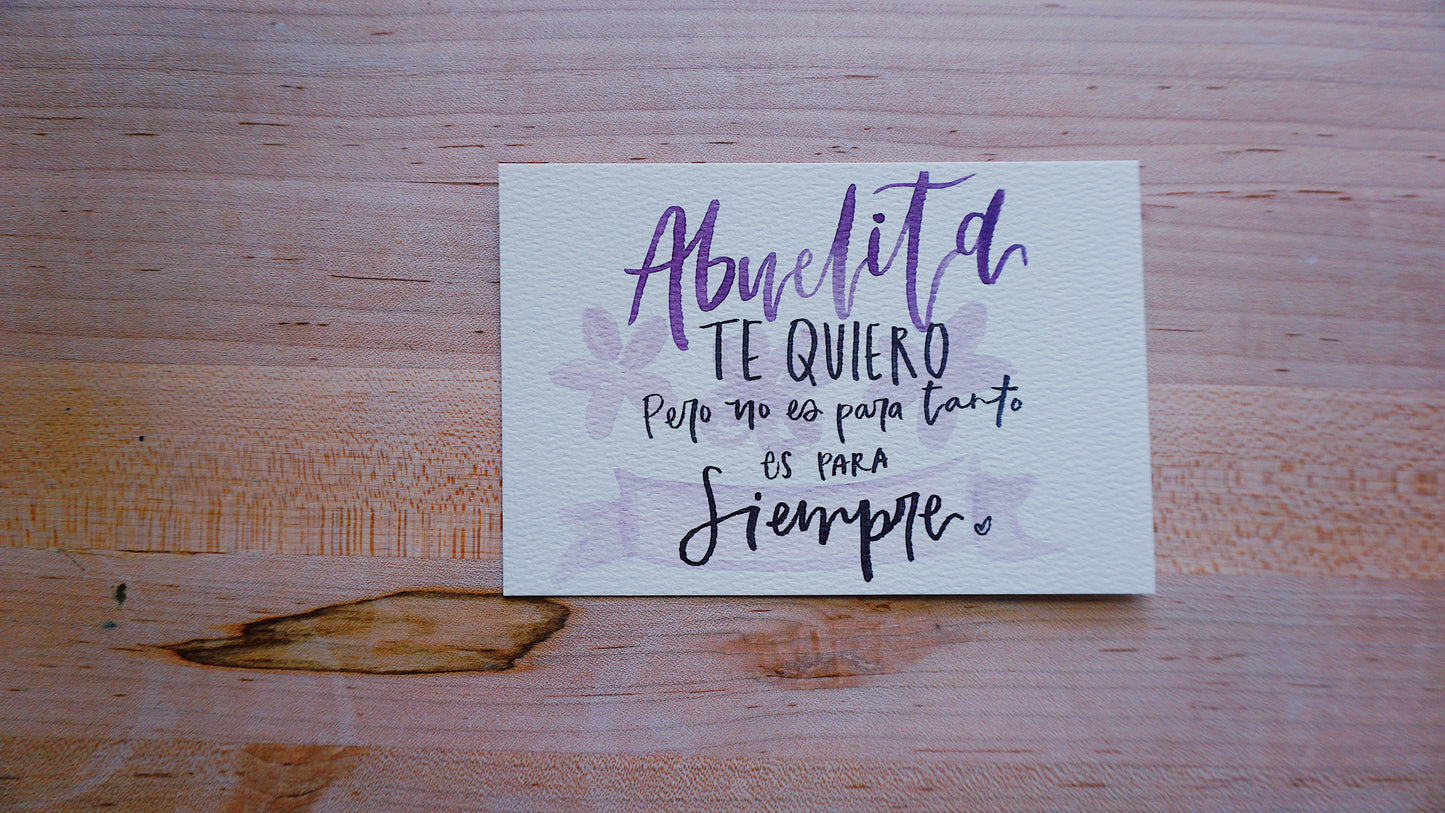 Abuelita
TE QUIERO
Pero no es para tanto
es PARA
Siempre.